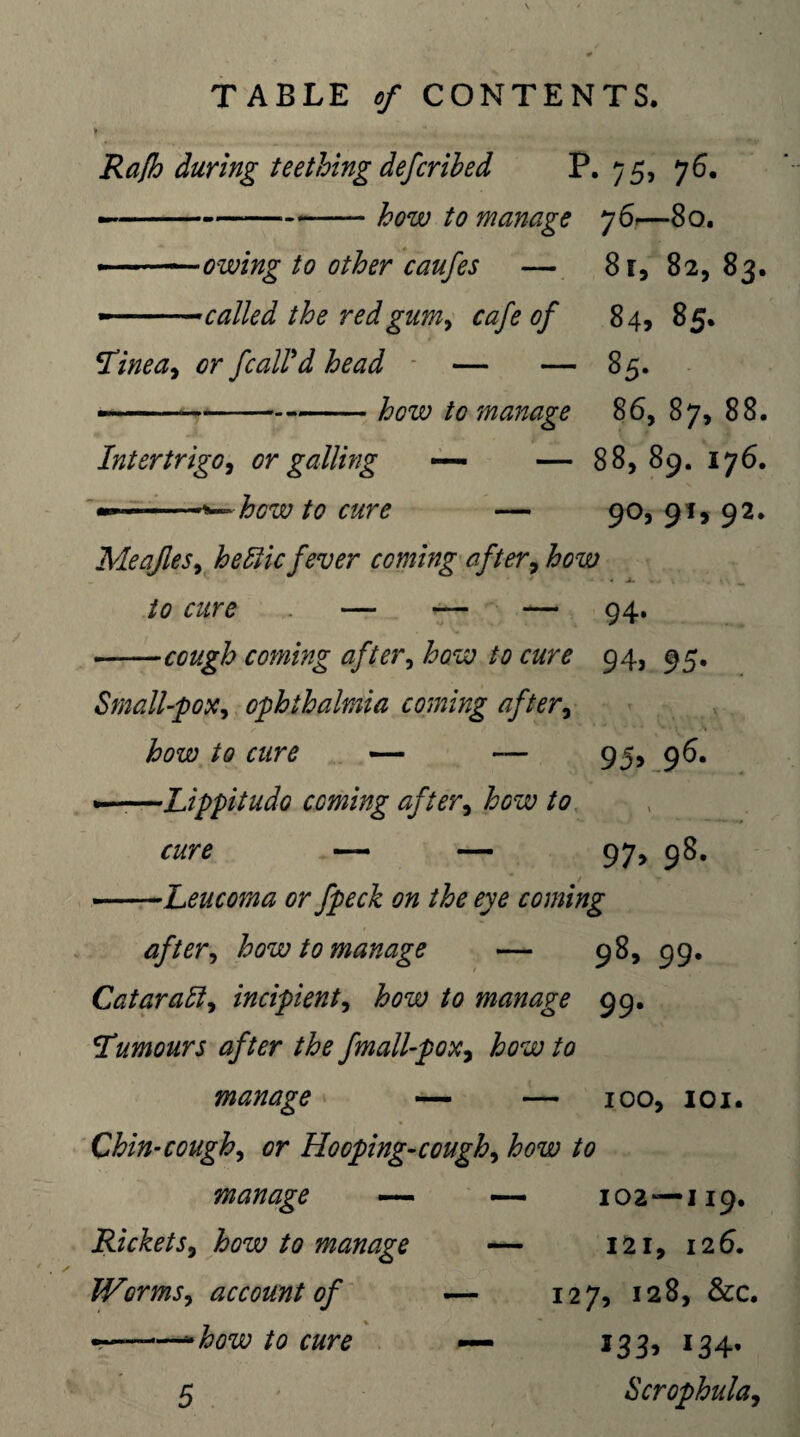 TABLE of CONTENTS.
Raſh during teething deſcribed P. 75, 76.
——————— how to manage 76—80.
———owing to other cauſes — 81, 82, 83.
———called the red gum, caſe of 84, 85.
Tinea, or ſcall'd head — — 85.
——————— how to manage 86, 87, 88.
Intertrigo, or galling — — 88, 89. 176.
————how to cure — 90, 91, 92.
Meaſles, hectic fever coming after, how
to cure — — — 94.
——cough coming after, how to cure 94, 95.
Small-pox, ophthalmia coming after,
how to cure — — 95, 96.
——Lippitudo coming after, how to
cure — — 97, 98.
——Leucoma or ſpeck on the eye coming
after, how to manage — 98, 99.
Cataract, incipient, how to manage 99.
Tumours after the ſmall-pox, how to
manage — — 100, 101.
Chin-cough, or Hooping-cough, how to
manage — — 102—119.
Rickets, how to manage — 121, 126.
Worms, account of — 127, 128, &c.
———how to cure — 133, 134.
5 Scrophula,